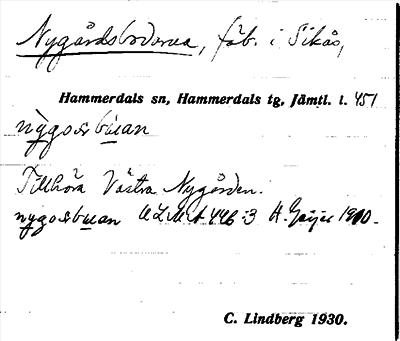 Nygårdsbodarna, fäb. i Sikås,
Hammerdals sn, Hammerdals tg, Jämtl. l. 451
Tillhöra Västra Nygården.
ULMA 446:3 H. Geijer 1910.
C. Lindberg 1930.